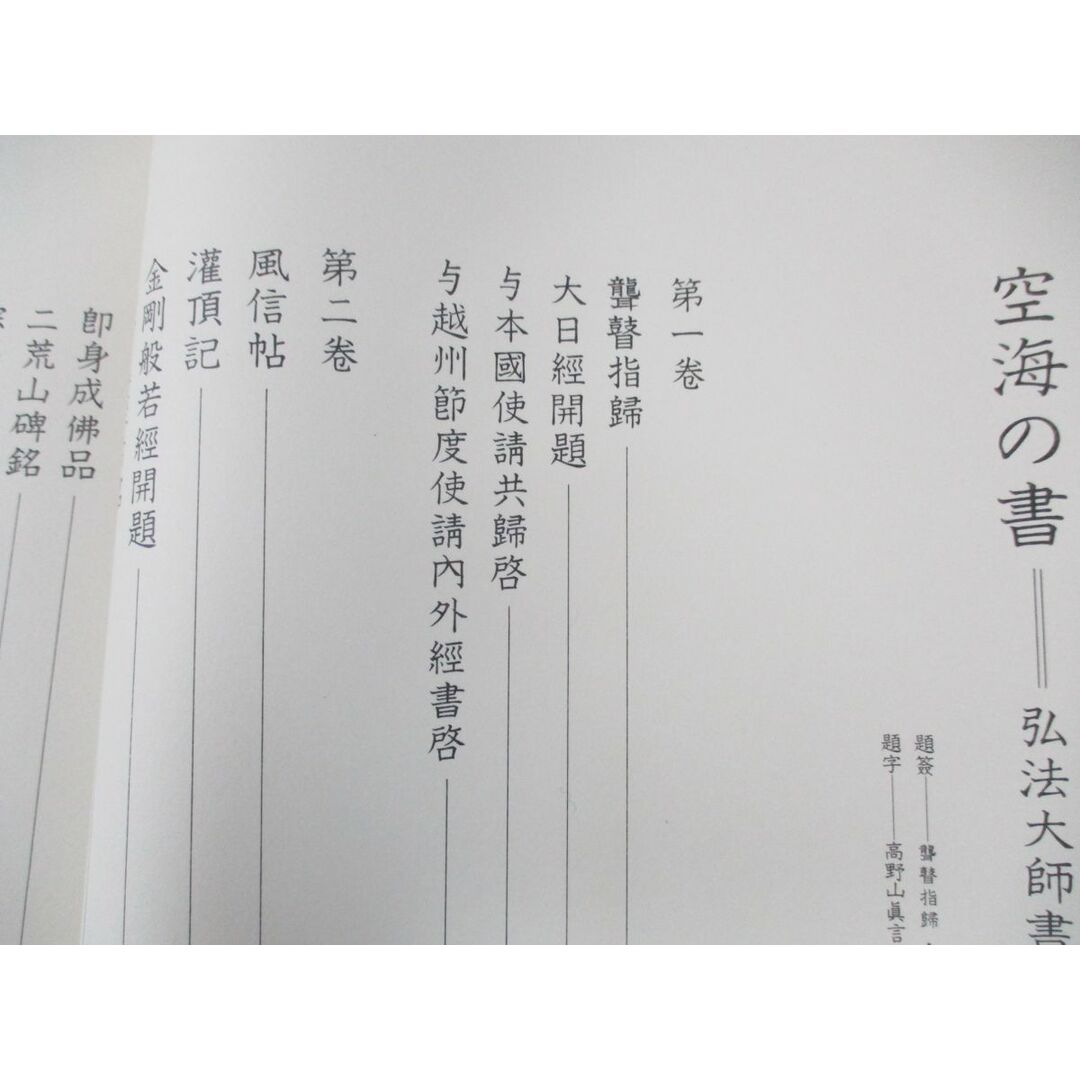 空海の書══弘法大師書
題簽──聾瞽指歸
題字──高野山眞言
第一卷
聾瞽指歸
大日經開題
与本國使請共歸啓
与越州節度使請內外經書啓
第二卷
風信帖
灌頂記
金剛般若經開題
卽身成佛品
二荒山碑銘